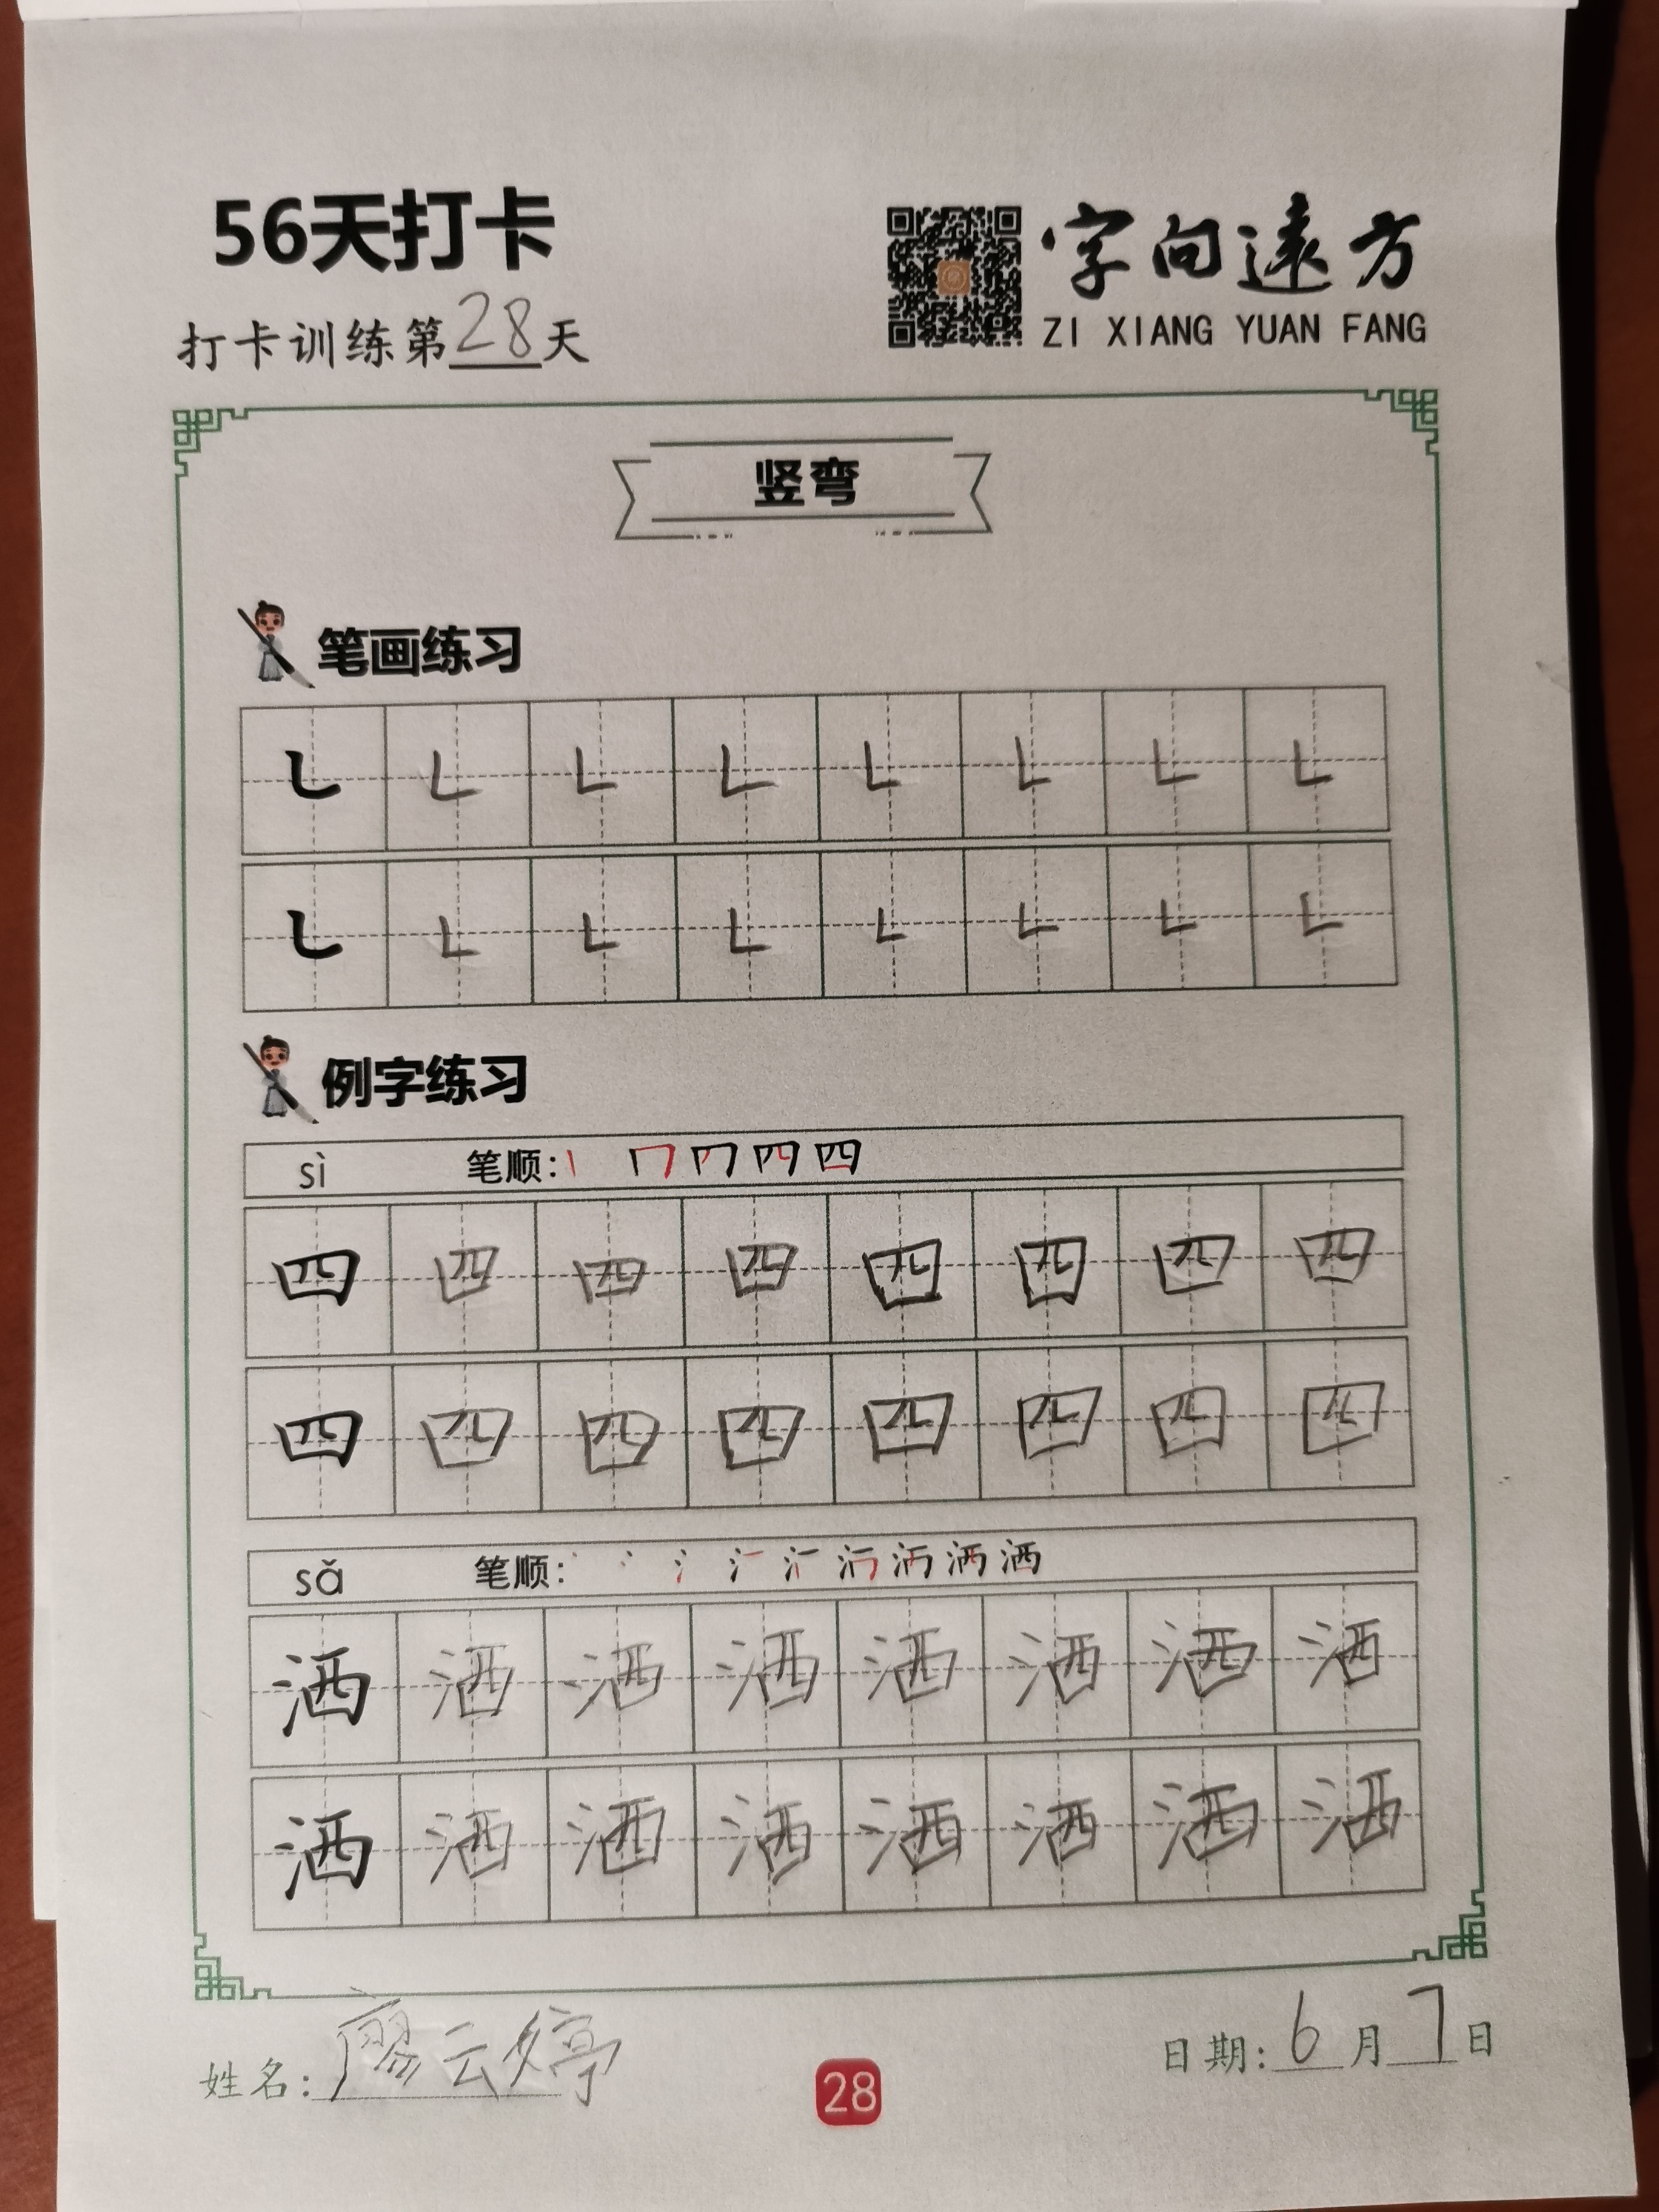 56天打卡
字向遠方
ZI XIANG YUAN FANG
打卡训练第28天
竖弯
笔画练习
㇄ ㇄ ㇄ ㇄ ㇄ ㇄ ㇄ ㇄
㇄ ㇄ ㇄ ㇄ ㇄ ㇄ ㇄ ㇄
例字练习
sì 笔顺:
四 四 四 四 四 四 四 四
四 四 四 四 四 四 四 四
sǎ 笔顺:
洒 洒 洒 洒 洒 洒 洒 洒
洒 洒 洒 洒 洒 洒 洒 洒
姓名:廖云婷
日期:6月7日
28